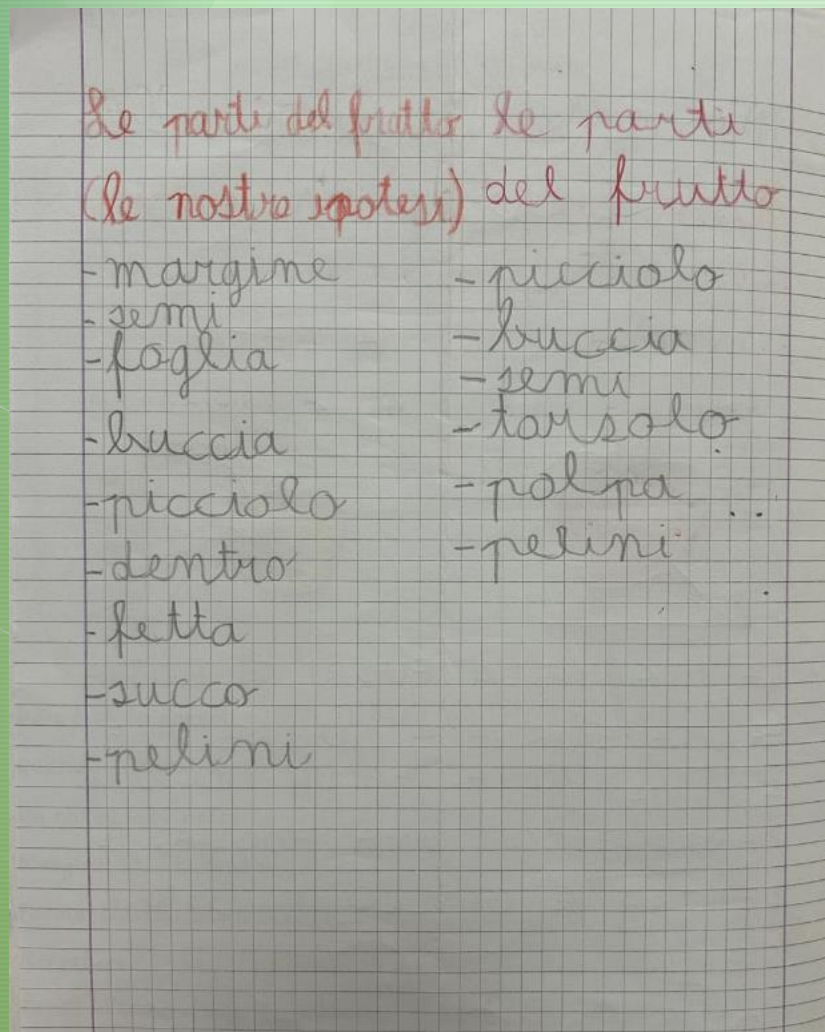 Le parti del frutto
(le nostre ipotesi)
-margine
-semi
-foglia
-buccia
-picciolo
-dentro
-fetta
-succo
-pelini
le parti
del frutto
-picciolo
-buccia
-semi
-torsolo
-polpa
-pelini